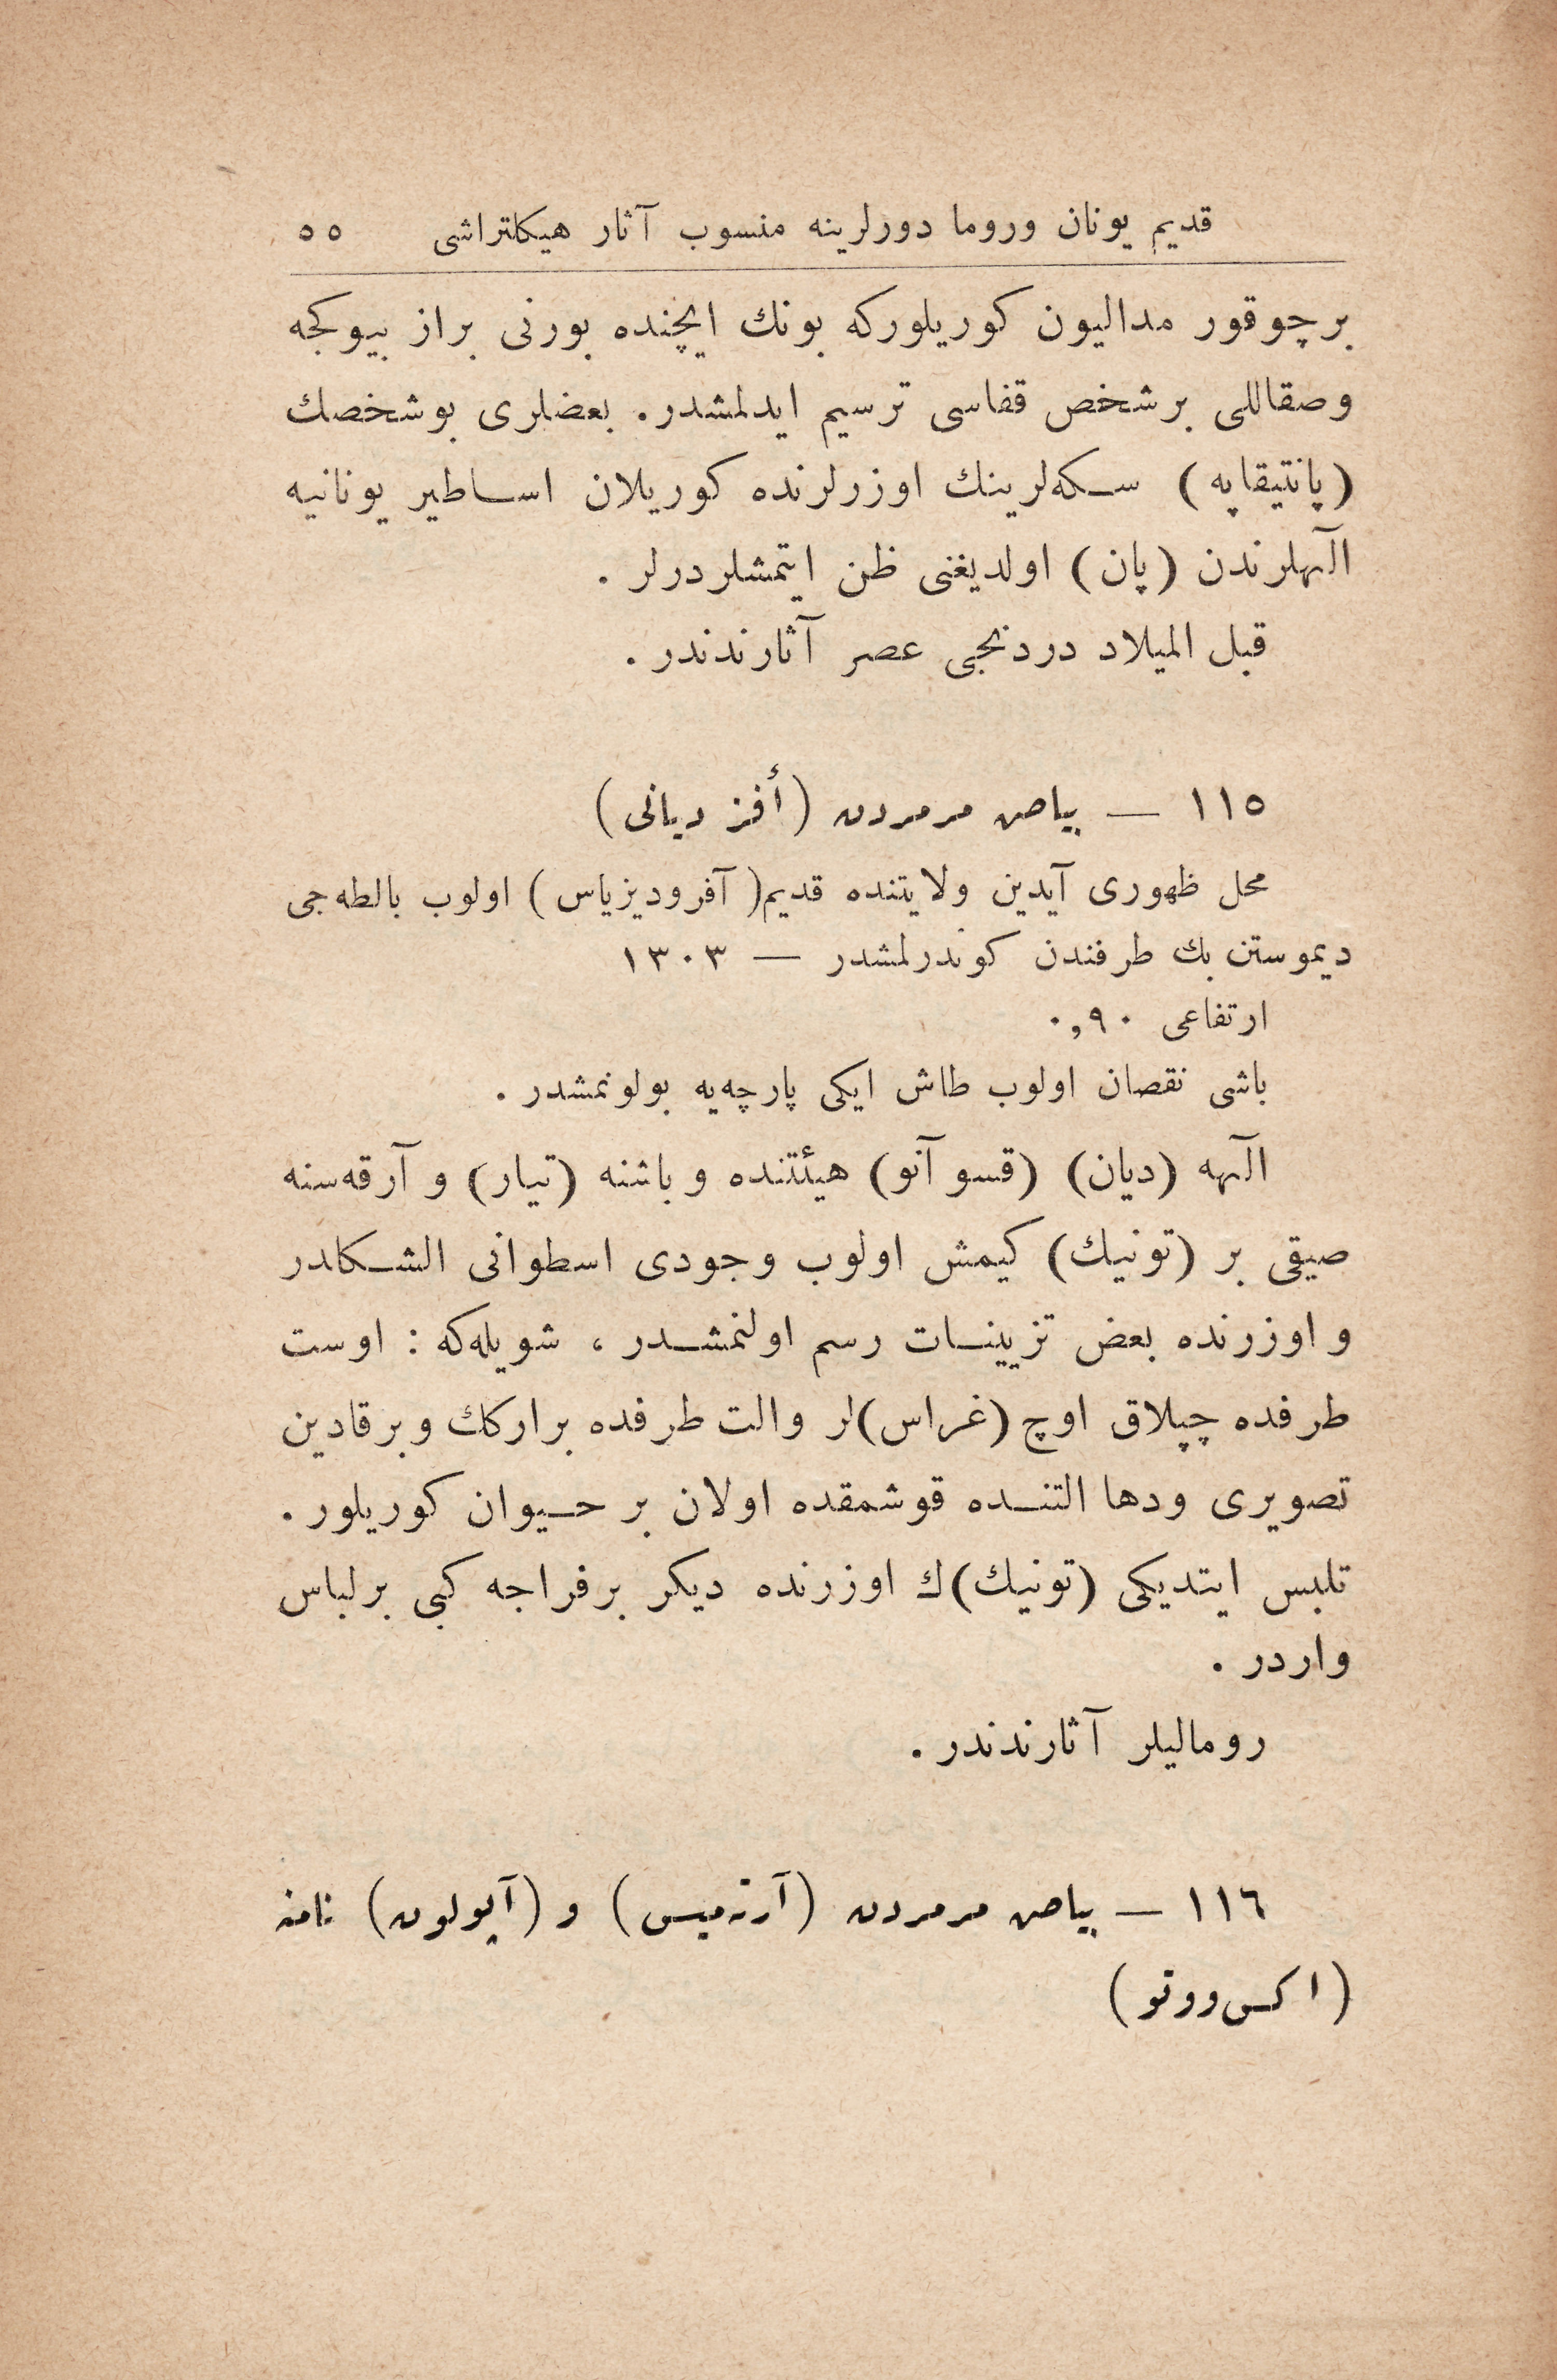 قديم يونان وروما دورلرينه منسوب آثار هيكلتراشى ٥٥
برچوقور مداليون كوريلوركه بونك ايچنده بورنى براز بيوكجه
وصقاللى برشخص قفاسى ترسيم ايدلمشدر. بعضلرى بوشخصك
(پانتيقاپه) سكه‌لرينك اوزرلرنده كوريلان اساطير يونانيه
آلهلرندن (پان) اولديغنى ظن ايتمشلردرلر .
قبل الميلاد دردنجى عصر آثارندندر .
١١٥ — بياض مرمردن (أفز ديانى)
محل ظهورى آيدين ولايتنده قديم( آفروديزياس) اولوب بالطه‌جى
ديموستن بك طرفندن كوندرلمشدر — ١٣٠٣
ارتفاعى ٠,٩٠
باشى نقصان اولوب طاش ايكى پارچه‌يه بولونمشدر .
آلهه (ديان) (قسو آنو) هيئتنده و باشنه (تيار) و آرقه‌سنه
صيقى بر (تونيك) كيمش اولوب وجودى اسطوانى الشكلدر
و اوزرنده بعض تزيينات رسم اولنمشدر ، شويله‌كه : اوست
طرفده چپلاق اوچ (غراس)لر والت طرفده براركك وبرقادين
تصويرى ودها التنده قوشمقده اولان بر حيوان كوريلور .
تلبس ايتديكى (تونيك)ك اوزرنده ديكر برفراجه كبى برلباس
واردر .
روماليلر آثارندندر .
١١٦ — بياض مرمردن (آرته‌ميس) و (آپولون) نامنه
(اكس‌ووتو)